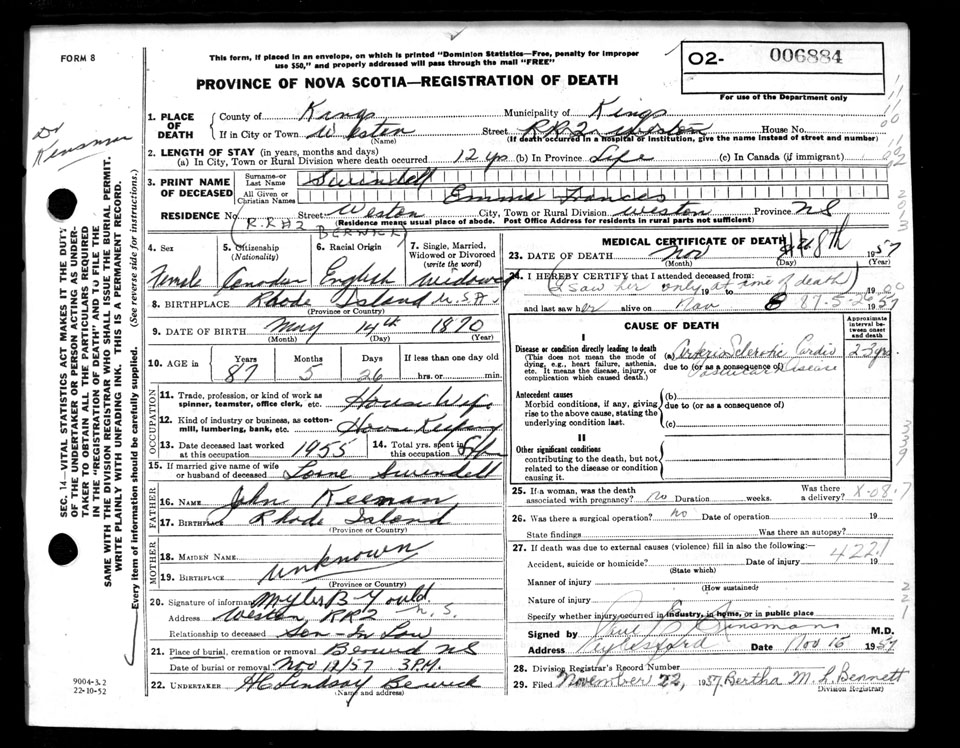 FORM 8
This form, if placed in an envelope, on which is printed "Dominion Statistics—Free, penalty for improper
use $50," and properly addressed will pass through the mail "FREE"
PROVINCE OF NOVA SCOTIA—REGISTRATION OF DEATH
02- 006884
For use of the Department only
Dr
Kinsman
SEC. 14—VITAL STATISTICS ACT MAKES IT THE DUTY
OF THE UNDERTAKER OR PERSON ACTING AS UNDER-
TAKER TO OBTAIN ALL THE PARTICULARS REQUIRED
IN THE "REGISTRATION OF DEATH" AND TO FILE THE
SAME WITH THE DIVISION REGISTRAR WHO SHALL ISSUE THE BURIAL PERMIT.
WRITE PLAINLY WITH UNFADING INK. THIS IS A PERMANENT RECORD.
Every item of information should be carefully supplied. (See reverse side for instructions.)
1. PLACE OF DEATH County of Kings Municipality of Kings
If in City or Town Weston Street RR2 Weston House No.
(Name) (If death occurred in a hospital or institution, give the name instead of street and number)
2. LENGTH OF STAY (in years, months and days)
(a) In City, Town or Rural Division where death occurred 12 yrs (b) In Province Life (c) In Canada (if immigrant)
3. PRINT NAME OF DECEASED Surname or Last Name Swindell
All Given or Christian Names Emma Frances
RESIDENCE No. Street Weston City, Town or Rural Division Weston Province NS
(R.R#2 BERWICK) (Residence means usual place of abode. Post Office Address for residents in rural parts not sufficient)
4. Sex 5. Citizenship (Nationality) 6. Racial Origin 7. Single, Married, Widowed or Divorced (write the word)
Female English Widowed
8. BIRTHPLACE Rhode Island U.S.A.
(Province or Country)
9. DATE OF BIRTH May 14th 1870
(Month) (Day) (Year)
10. AGE in Years Months Days If less than one day old
87 5 26 hrs. or min.
OCCUPATION
11. Trade, profession, or kind of work as spinner, teamster, office clerk, etc. House Wife
12. Kind of industry or business, as cotton-mill, lumbering, bank, etc. House Keeping
13. Date deceased last worked at this occupation 1955 14. Total yrs. spent in this occupation
15. If married give name of wife or husband of deceased Lorne Swindell
FATHER
16. NAME John Keenan
17. BIRTHPLACE Rhode Island
(Province or Country)
MOTHER
18. MAIDEN NAME
19. BIRTHPLACE unknown
(Province or Country)
20. Signature of informant Myles B Gould
Address Weston, RR2 N.S
Relationship to deceased Son-In Law
21. Place of burial, cremation or removal Berwick NS
Date of burial or removal Nov 12/57 3 P.M.
22. UNDERTAKER H C Lindsay Berwick
(Name and address)
9004-3.2
22-10-52
MEDICAL CERTIFICATE OF DEATH
23. DATE OF DEATH Nov 8th 1957
(Month) (Day) (Year)
24. I HEREBY CERTIFY that I attended deceased from:
(I saw her only at time of death)
and last saw her alive on Nov 8 87-5-26 1957
CAUSE OF DEATH
Approximate interval between onset and death
I
Disease or condition directly leading to death
(This does not mean the mode of dying, e.g., heart failure, asthenia, etc. It means the disease, injury, or complication which caused death.)
(a) Arterio Sclerotic Cardio 2-3 yrs.
due to (or as a consequence of) Vascular Disease
Antecedent causes
Morbid conditions, if any, giving rise to the above cause, stating the underlying condition last.
(b)
due to (or as a consequence of)
(c)
II
Other significant conditions
contributing to the death, but not related to the disease or condition causing it.
25. If a woman, was the death associated with pregnancy? no Duration weeks. Was there a delivery? X-08.7
26. Was there a surgical operation? no Date of operation 19
State findings Was there an autopsy?
27. If death was due to external causes (violence) fill in also the following:— 422.1
Accident, suicide or homicide? Date of injury 19
(State which)
Manner of injury
(How sustained)
Nature of injury
Specify whether injury occurred in industry, in home, or in public place
Signed by Kinsman M.D.
Address Aylesford Date Nov 15 1957
28. Division Registrar's Record Number
29. Filed November 22, 1957 Bertha M. L. Bennett
Division Registrar)